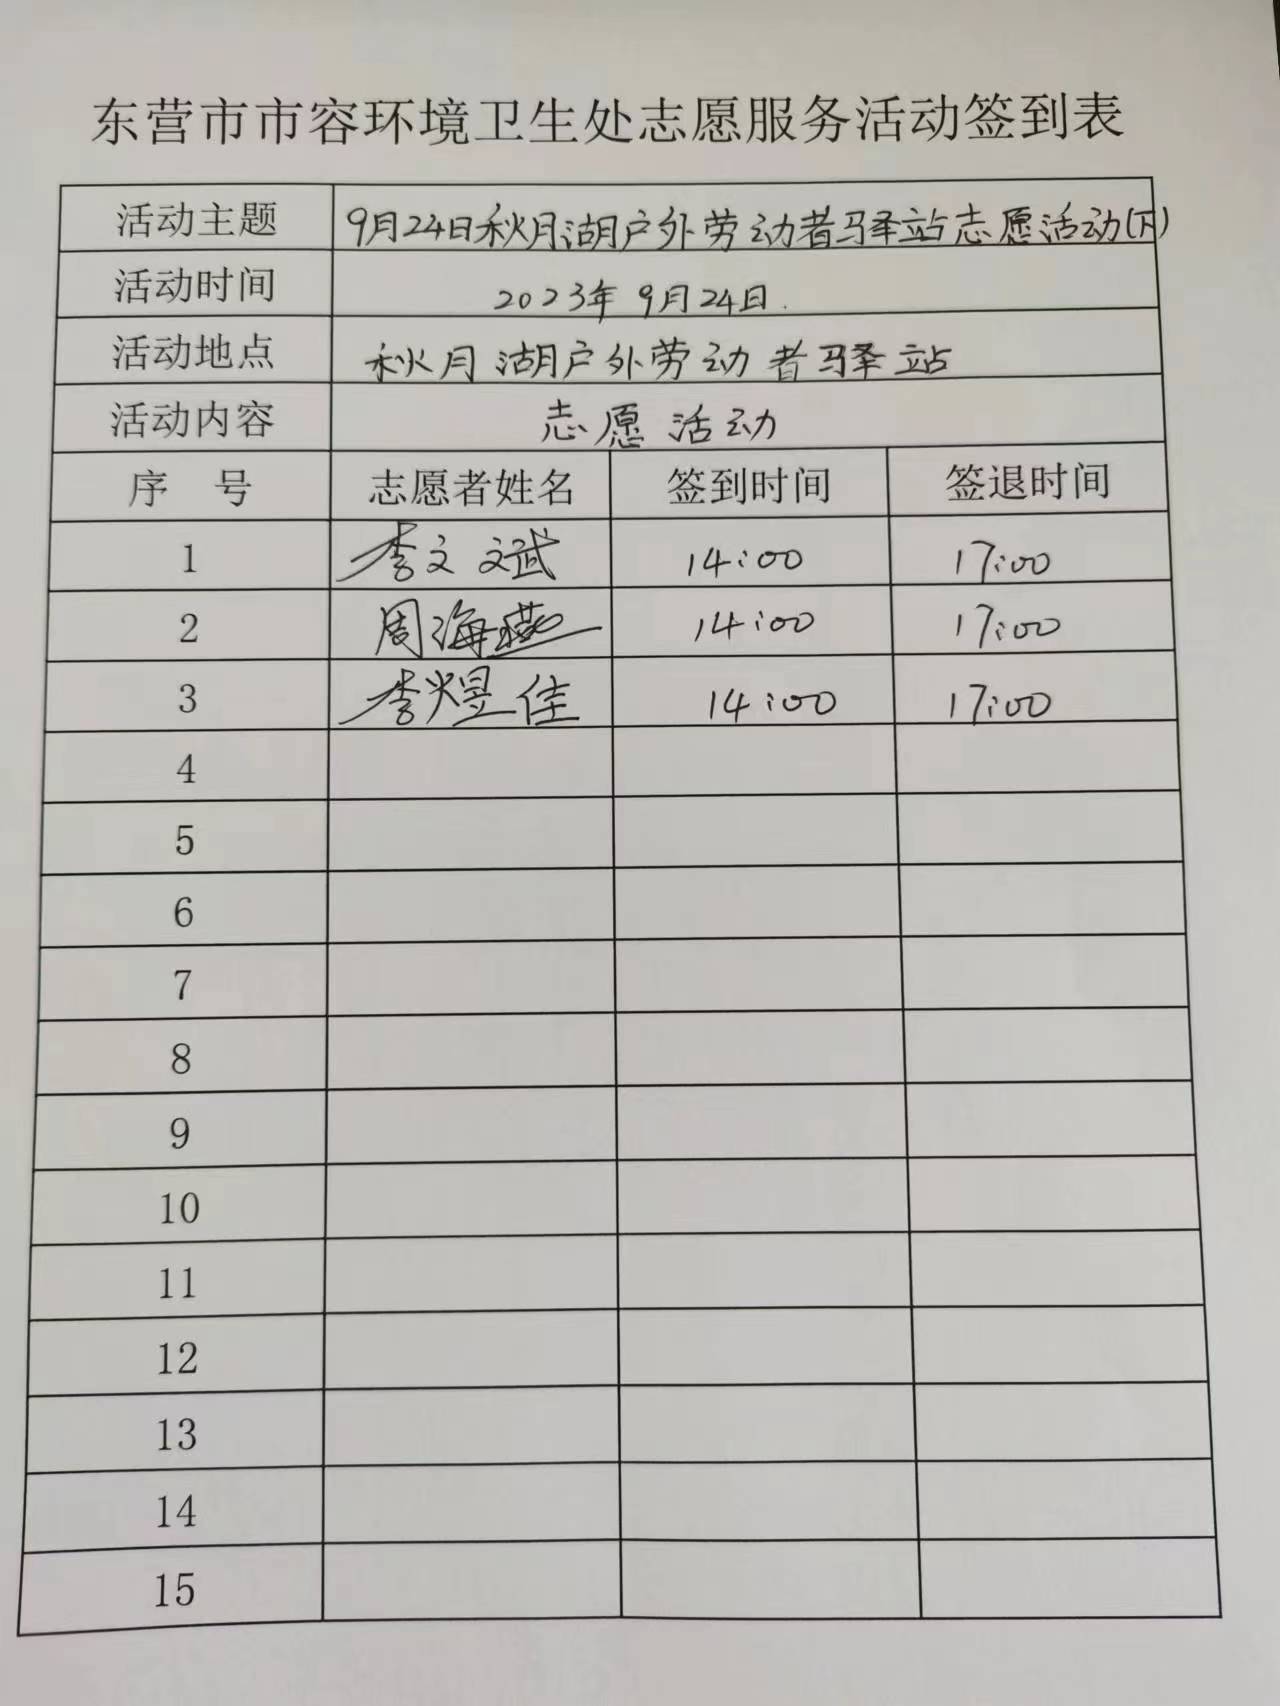 东营市市容环境卫生处志愿服务活动签到表
活动主题 9月24日秋月湖户外劳动者驿站志愿活动(下)
活动时间 2023年9月24日.
活动地点 秋月湖户外劳动者驿站
活动内容 志愿活动
序 号 志愿者姓名 签到时间 签退时间
1 李文斌 14:00 17:00
2 周海燕 14:00 17:00
3 李煜佳 14:00 17:00
4
5
6
7
8
9
10
11
12
13
14
15